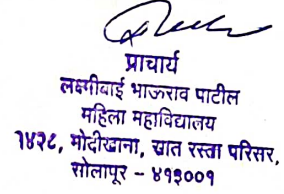 प्राचार्य
लक्ष्मीबाई भाऊराव पाटील
महिला महाविद्यालय
१४२८, मोदीखाना, सात रस्ता परिसर,
सोलापूर - ४१३००१